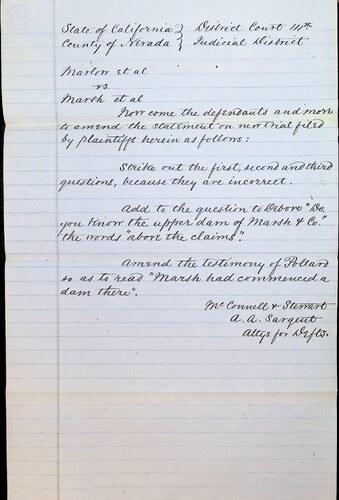 State of California } District Court 14th
County of Nevada } Judicial District
Marlow et al
vs.
Marsh et al
Now come the defendants and move
to amend the statement on new trial filed
by plaintiffs herein as follows:
Strike out the first, second and third
questions, because they are incorrect.
Add to the question to Debore "Do
you know the upper dam of Marsh & Co."
the words "above the claims".
Amend the testimony of Pollard
so as to read "Marsh had commenced a
dam there".
McConnell & Stewart
A. A. Sargent
Attys for Defts.